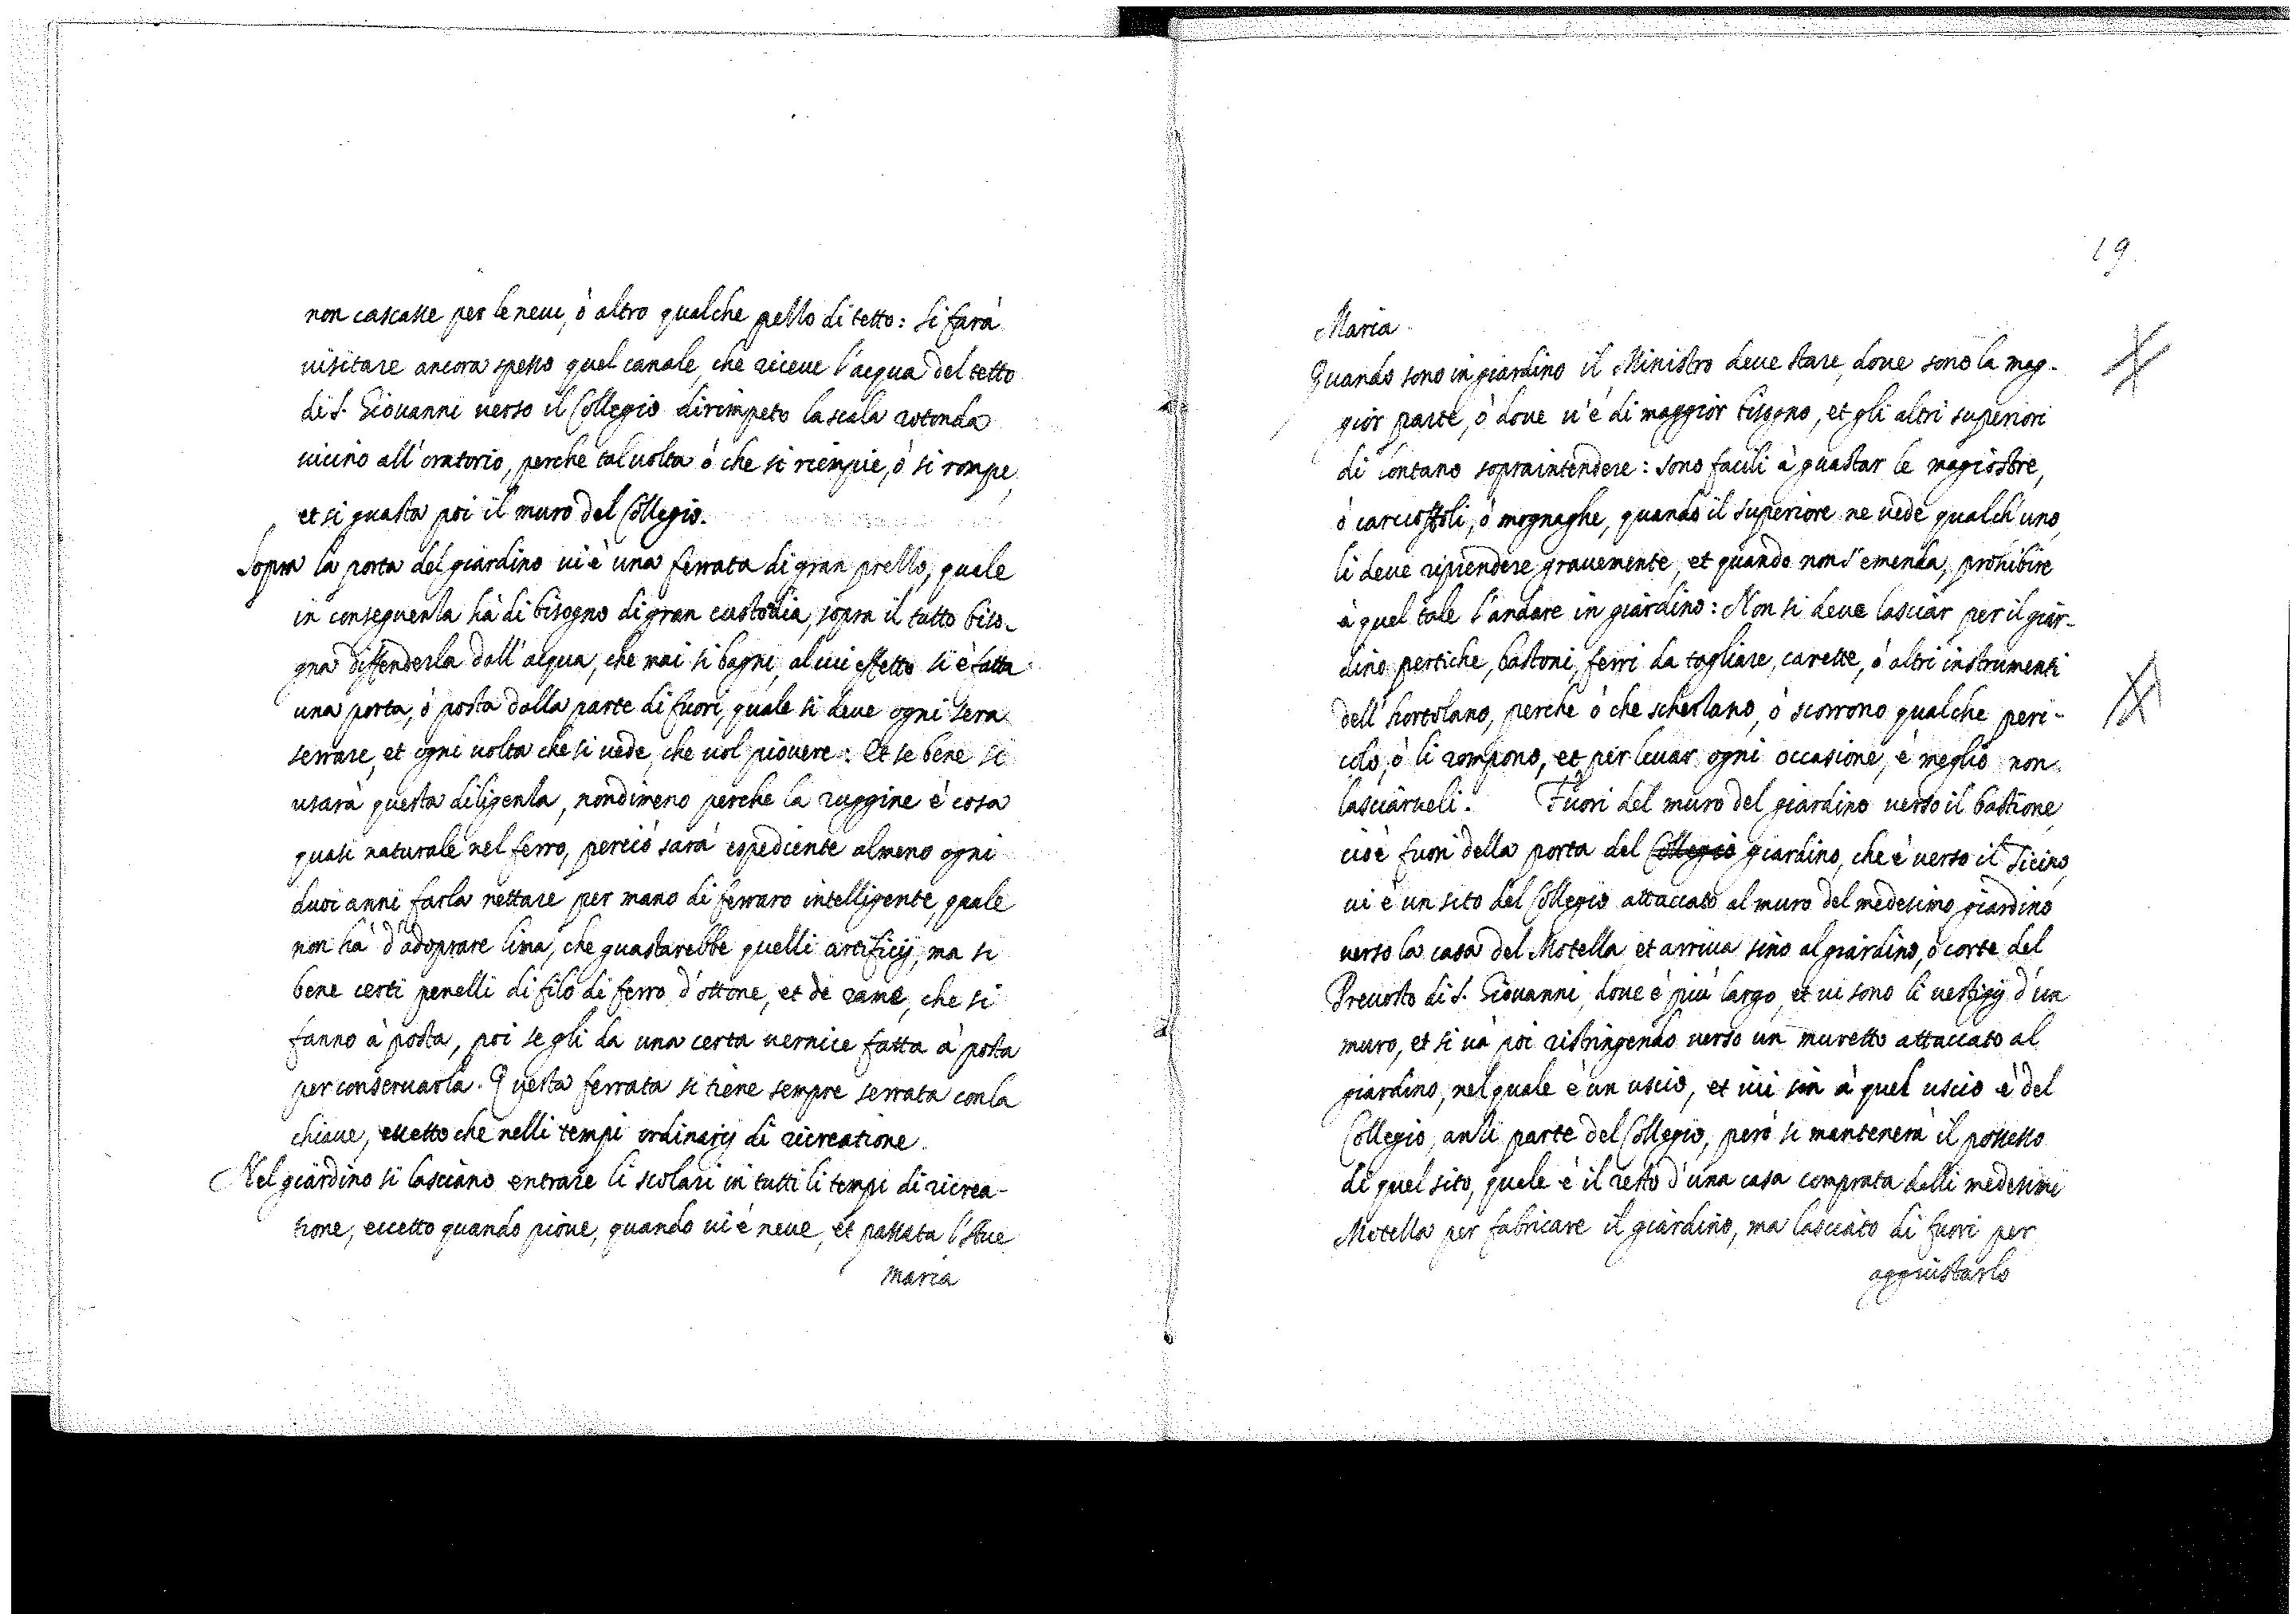 non cascasse per le neui, ò altro qualche pezzo di tetto: si farà
uisitare ancora spesso quel canale, che riceue l'acqua del tetto
di S. Giouanni uerso il Collegio dirimpeto la scala rotonda
uicino all'oratorio, perche tal uolta ò che si riempie, ò si rompe,
et si guasta poi il muro del Collegio.
Sopra la porta del giardino ui è una ferrata di gran prezzo, quale
in conseguenza hà di bisogno di gran custodia, sopra il tutto biso-
gna diffenderla dall'acqua, che mai si bagni, al cui effetto si è fatta
una porta, ò posta dalla parte di fuori, quale si deue ogni sera
serrare, et ogni uolta che si uede, che uol piouere: Et se bene si
usarà questa diligenza, nondimeno perche la ruggine è cosa
quasi naturale nel ferro, perciò sarà espediente almeno ogni
duoi anni farla nettare per mano di ferraro intelligente, quale
non hà d'adoprare lima, che guastarebbe quelli artificij, ma si
bene certi penelli di filo di ferro d'ottone, et de rame, che si
fanno à posta, poi se gli da una certa uernice fatta à posta
per conseruarla. Questa ferrata si tiene sempre serrata con la
chiaue, eccetto che nelli tempi ordinarij di ricreatione.
Nel giardino si lasciano entrare li scolari in tutti li tempi di ricrea-
tione, eccetto quando pioue, quando ui è neue, et passata l'Aue
maria
19.
Maria
Quando sono in giardino il Ministro deue stare, doue sono la mag-
gior parte, ò doue u'è di maggior bisogno, et gli altri superiori
di lontano sopraintendere: sono facili à guastar le magiostre,
ò carcioffoli, ò mognaghe, quando il superiore ne uede qualch'uno,
li deue riprendere grauemente, et quando non s'emenda, prohibire
à quel tale l'andare in giardino: Non si deue lasciar per il giar-
dino pertiche, bastoni, ferri da tagliare, carette, ò altri instrumenti
dell'hortolano, perche ò che scherzano, ò scorrono qualche peri-
colo, ò li rompono, et per leuar ogni occasione, è meglio non
lasciarueli. Fuori del muro del giardino uerso il bastione,
cioè fuori della porta del Collegio giardino, che è uerso il Ticino,
ui è un sito del Collegio attaccato al muro del medesimo giardino
uerso la casa del Motella et arriua sino al giardino, ò corte del
Preuosto di S. Giouanni, doue è più largo, et ui sono li uestigij d'un
muro, et si uà poi ristringendo uerso un muretto attaccato al
giardino, nel quale è un uscio, et iui sin à quel uscio è del
Collegio, anzi parte del Collegio, però si mantenerà il possesso
di quel sito, quale è il resto d'una casa comprata dalli medesimi
Motella per fabricare il giardino, ma lasciato di fuori per
aggiustarlo